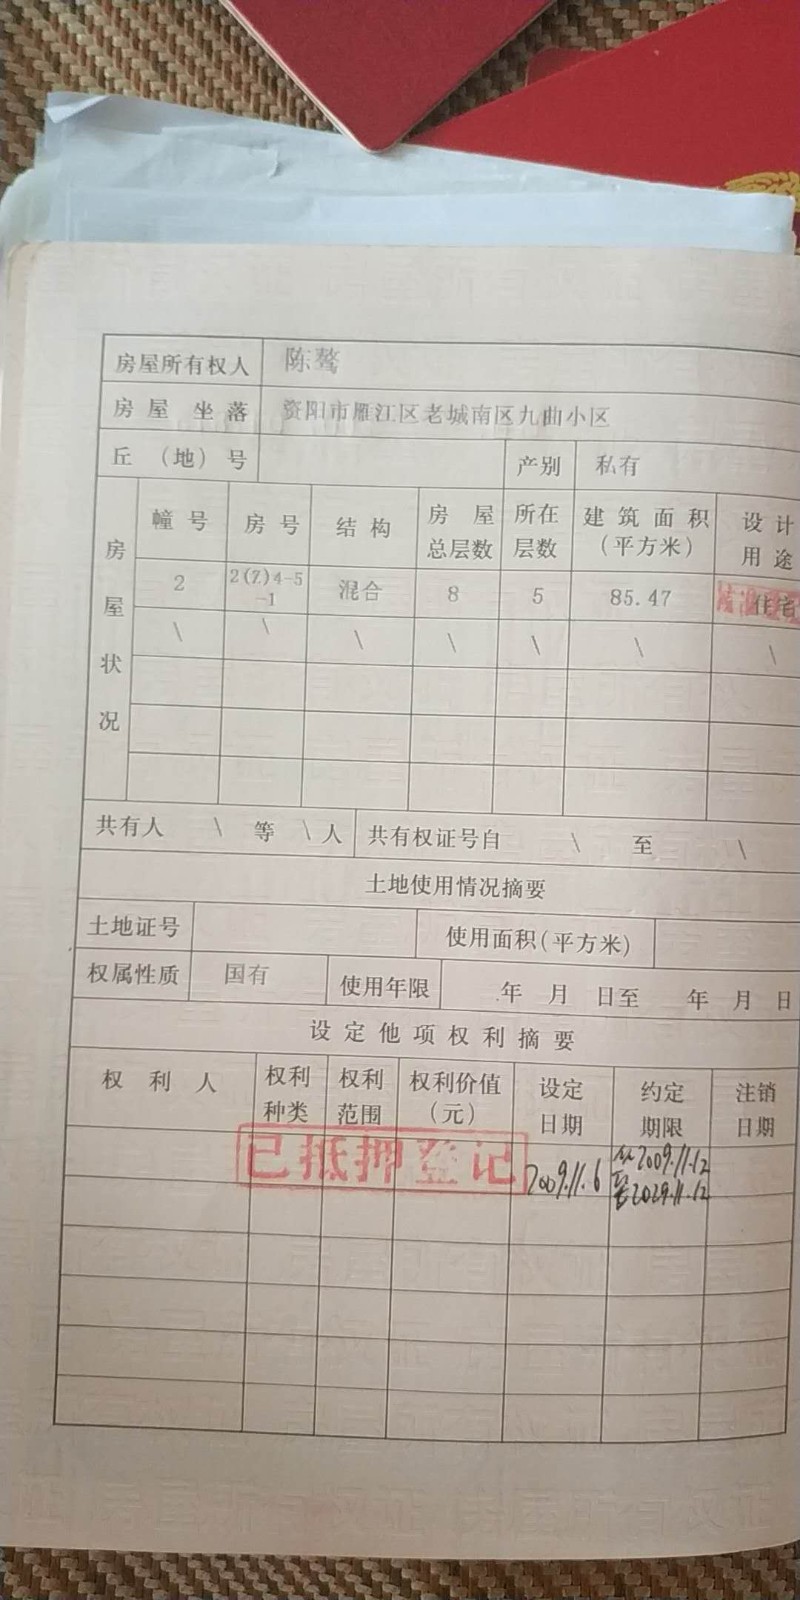 房屋所有权人 陈骜
房屋坐落 资阳市雁江区老城南区九曲小区
丘（地）号 产别 私有
房屋状况
幢号 房号 结构 房屋总层数 所在层数 建筑面积（平方米） 设计用途
2 2(7)4-5-1 混合 8 5 85.47 住宅
\ \ \ \ \ \ \
共有人 \ 等 \ 人 共有权证号自 \ 至 \
土地使用情况摘要
土地证号 使用面积(平方米)
权属性质 国有 使用年限 年 月 日至 年 月 日
设定他项权利摘要
权利人 权利种类 权利范围 权利价值（元） 设定日期 约定期限 注销日期
已抵押登记 2009.11.6 从2009.11.12
至2029.11.12